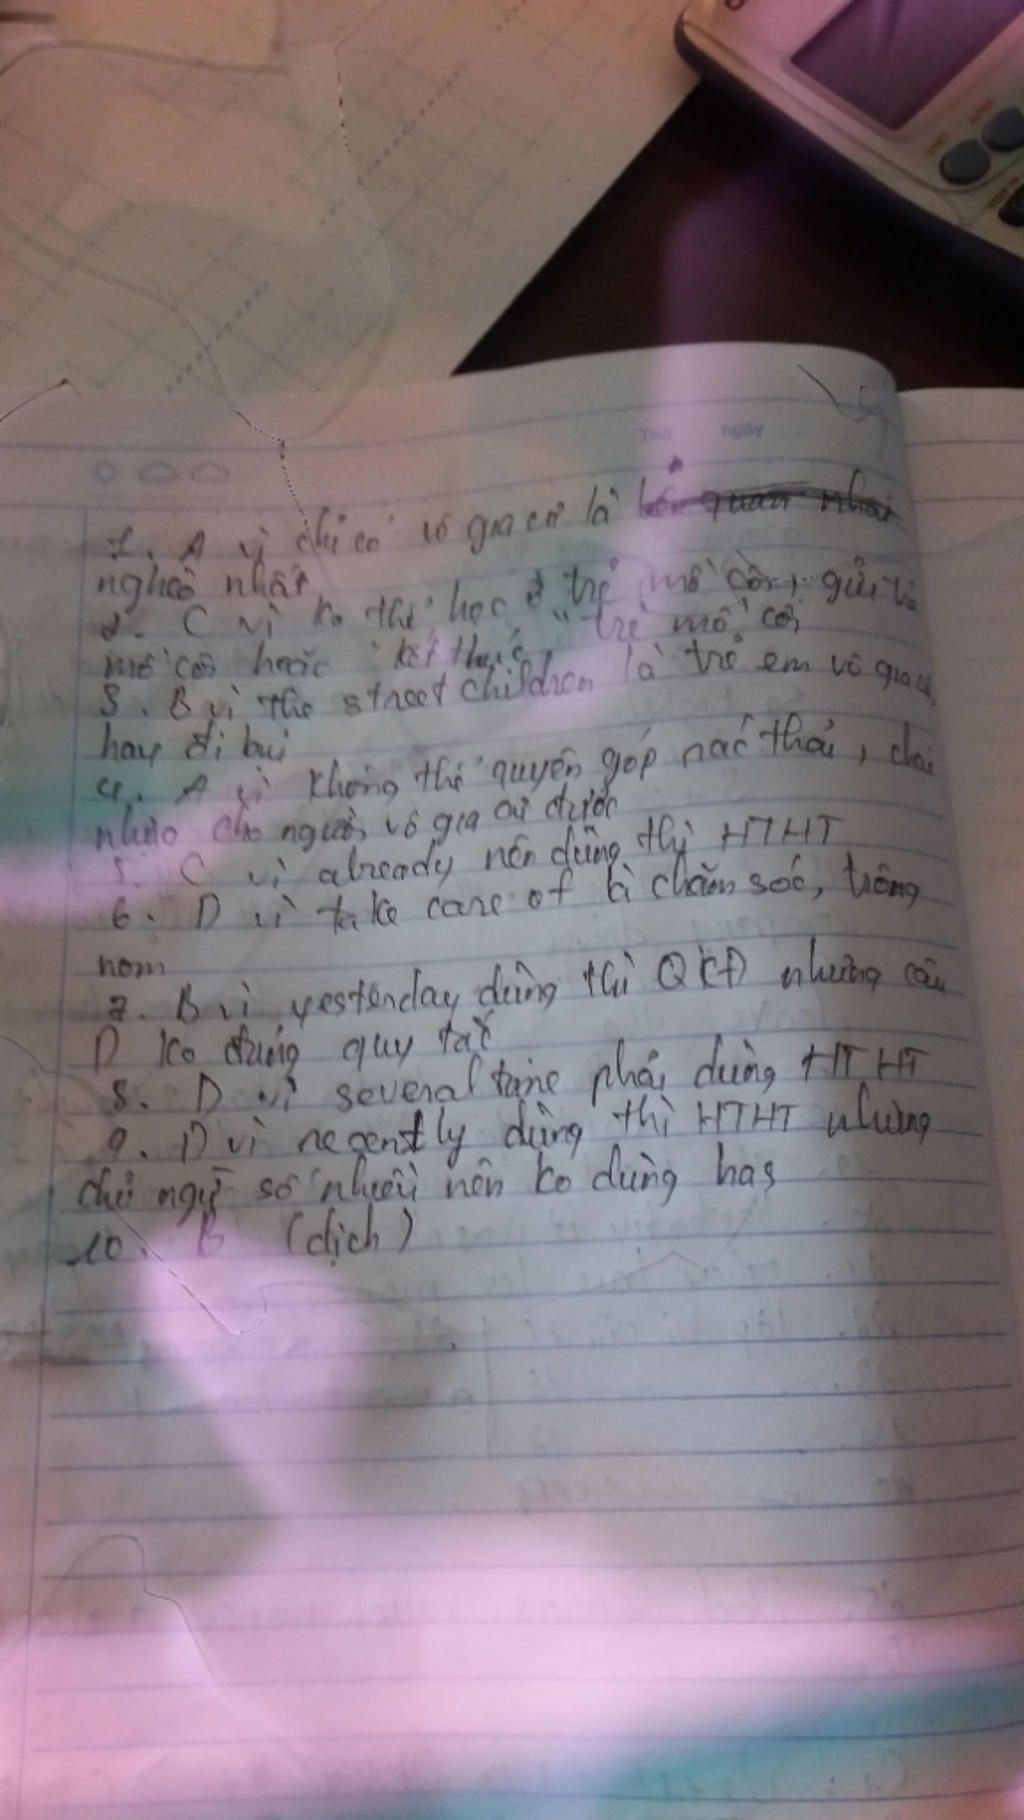 Thứ ngày
1. A vì chỉ có vô gia cư là
nghèo nhất
2. C vì ko thể học ở trẻ mồ côi, gửi
mồ côi hoặc kết thúc "trẻ mồ côi
3. B vì the street children là trẻ em vô gia cư
hay đi bụi
4. A vì không thể quyên góp rác thải, chai
nhựa cho người vô gia cư được
5. C vì already nên dùng thì HTHT
6. D vì take care of là chăm sóc, trông
nom
7. B vì yesterday dùng thì QKĐ nhưng câu
D ko đúng quy tắc
8. D vì several time phải dùng HTHT
9. D vì recently dùng thì HTHT nhưng
chủ ngữ số nhiều nên ko dùng has
10. B (dịch)